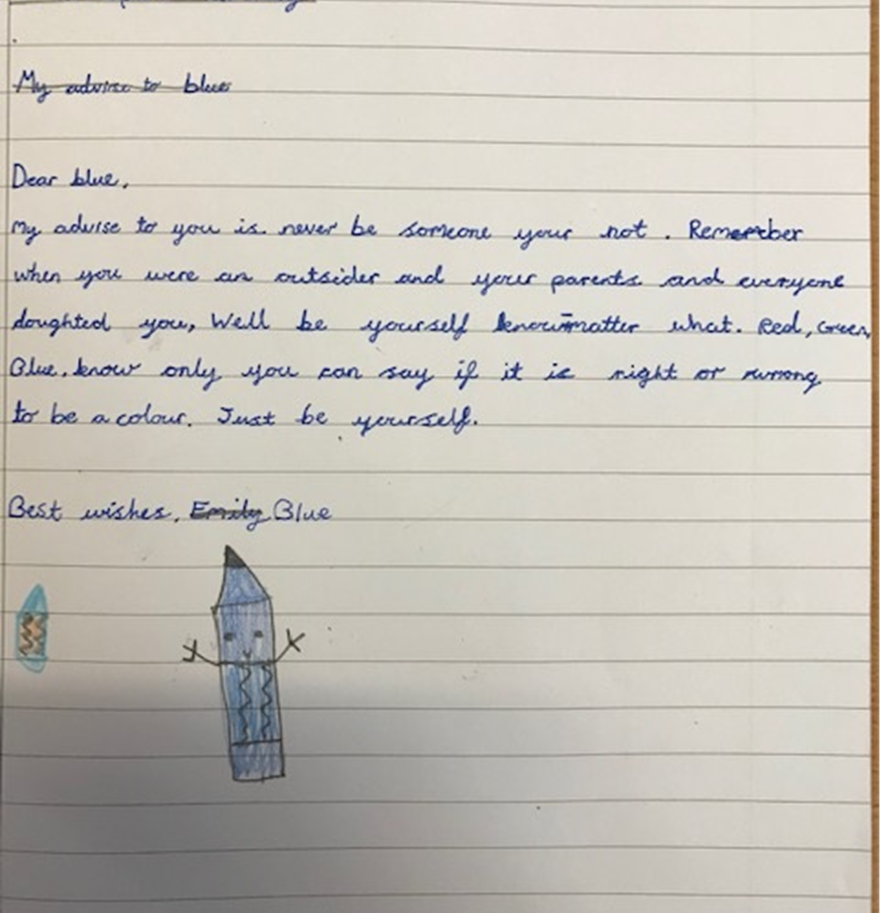 My advise to blue
Dear blue,
My advise to you is never be someone your not. Remember
when you were an outsider and your parents and everyone
doughted you, Well be yourself know matter what. Red, Green,
Blue, know only you can say if it is right or wrong
to be a colour. Just be yourself.
Best wishes, Emily Blue